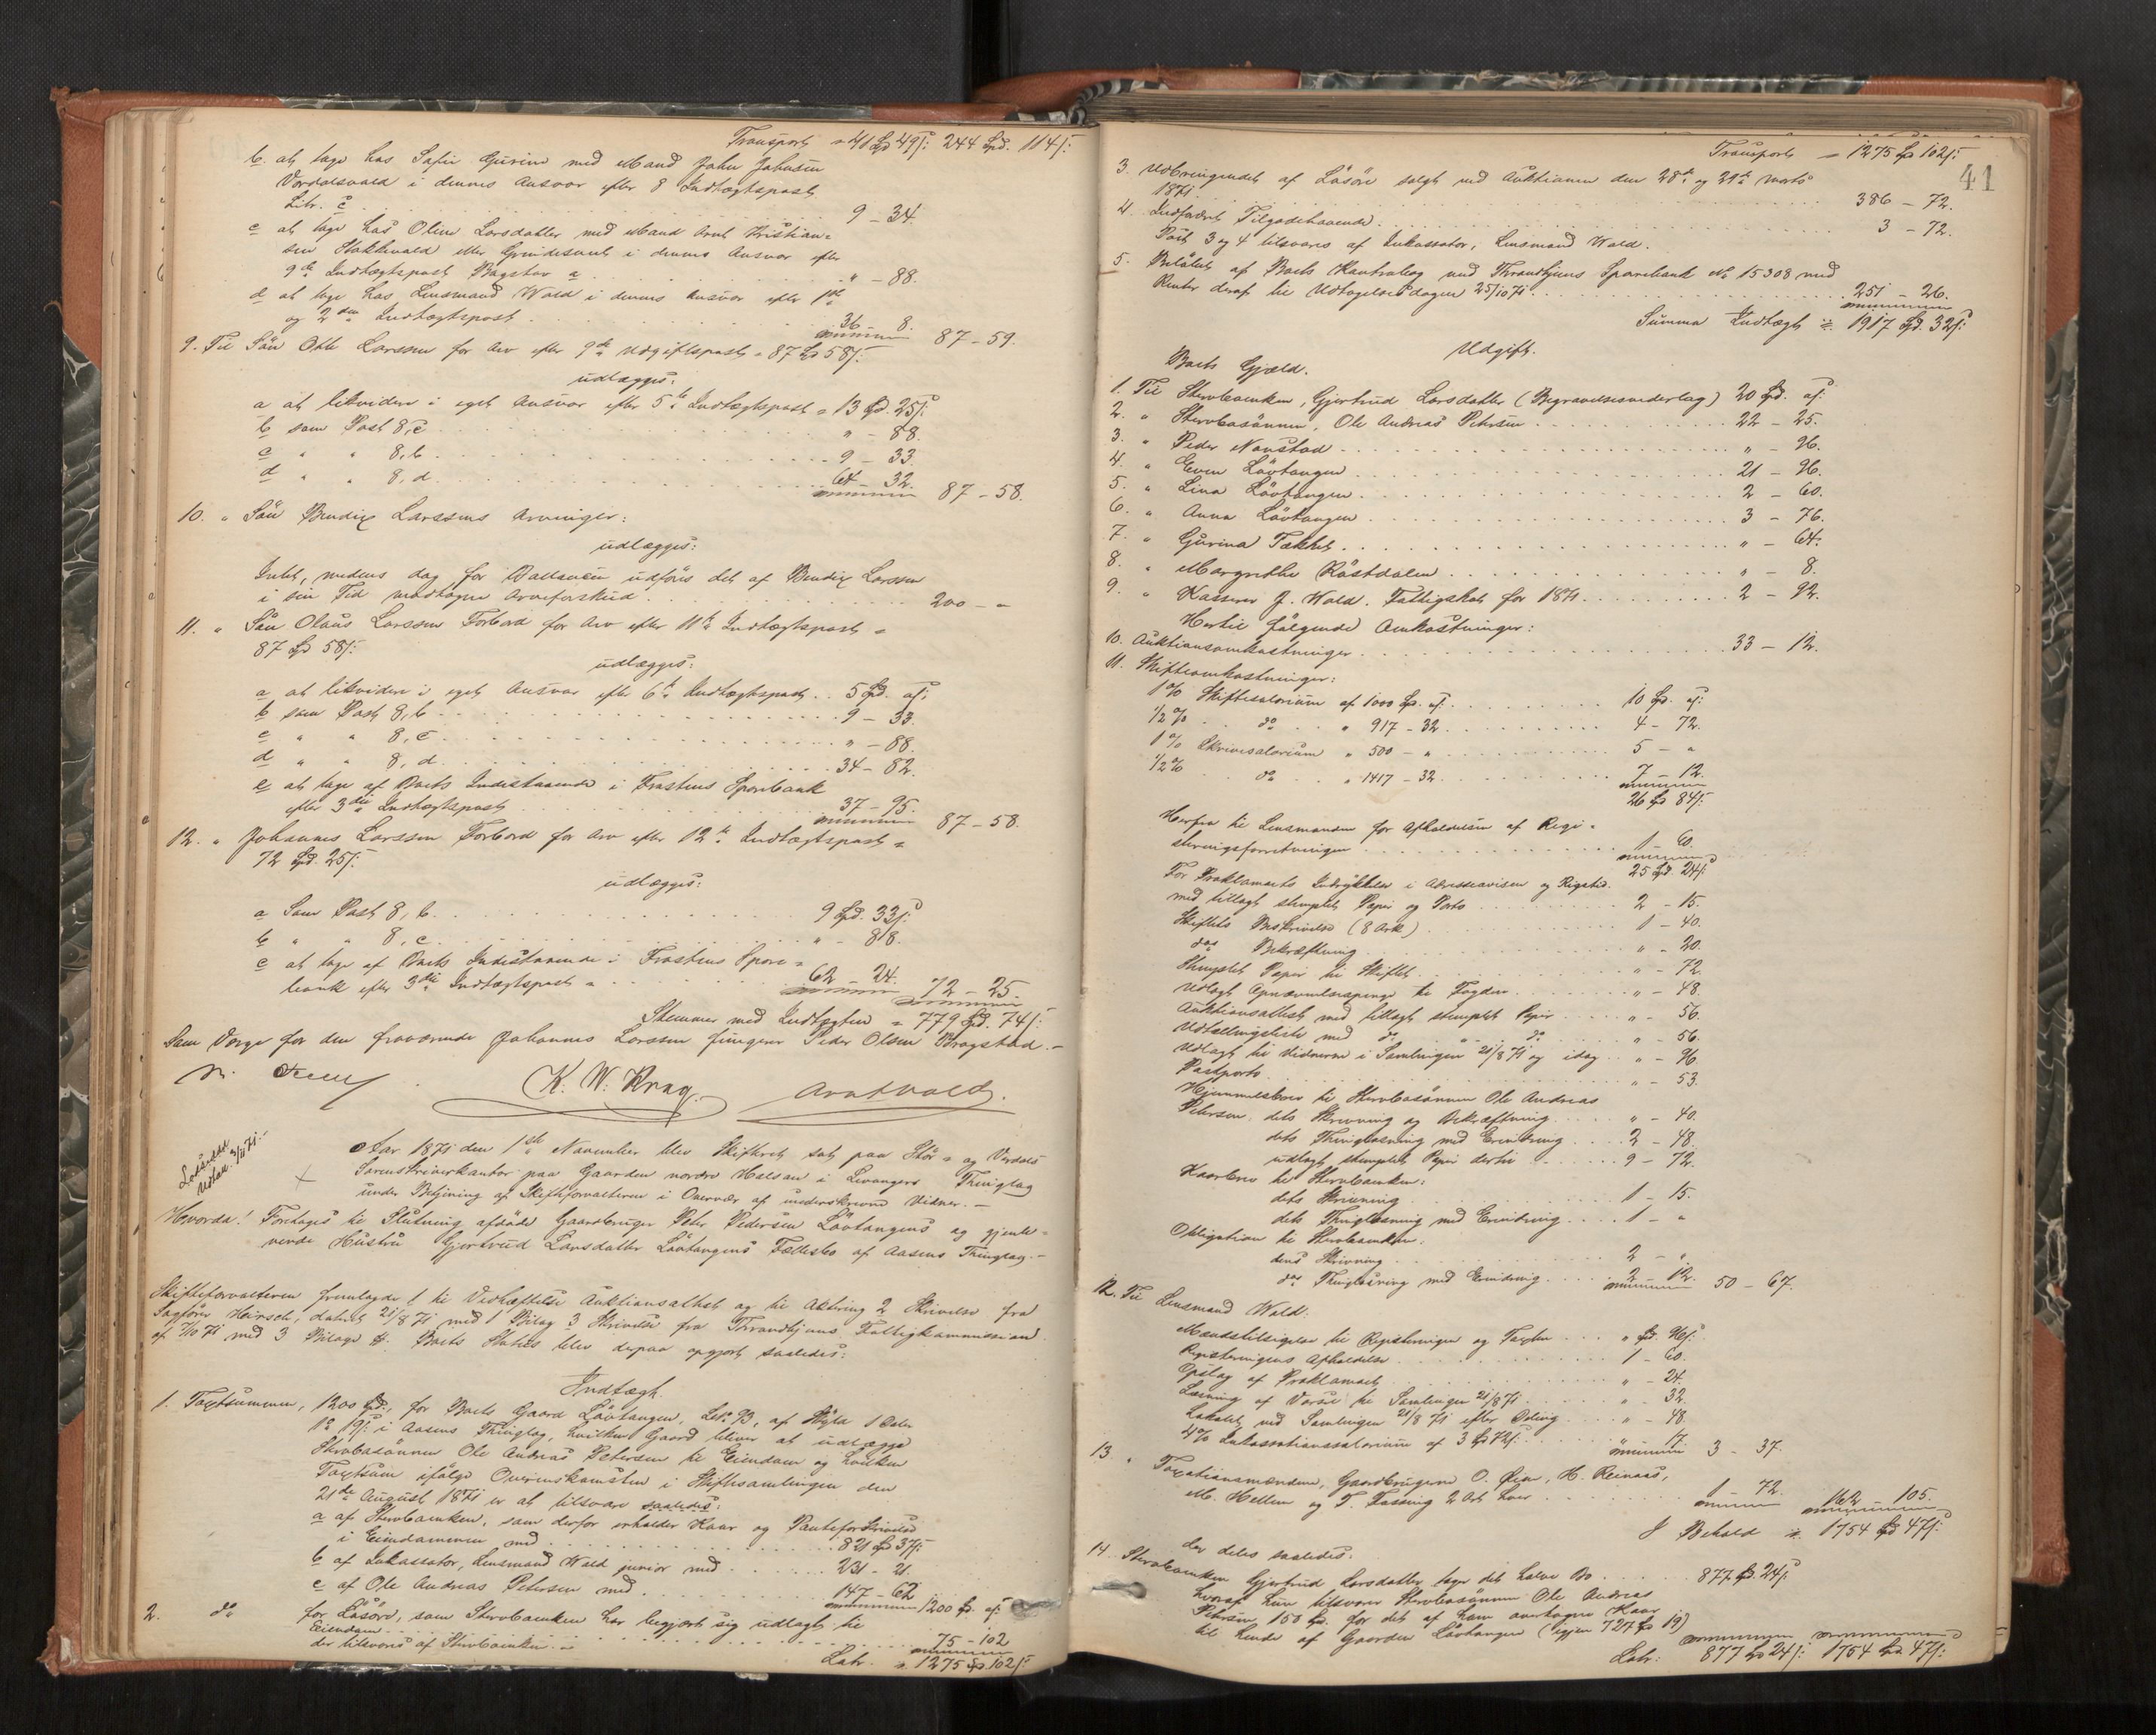 Transport = 41 Spd 49 s: 244 Spd. 114 s:
b. at tage hos Sofie Gurine med Mand John Johnsen
Verdalsvald i dennes Ansvar efter 8 Indtægtspost
Litr. c 9 - 34
c at tage hos Oline Larsdatter med Mand Arnt Kristian-
sen Stokkvald eller i dennes Ansvar efter
9de Indtægtspost Bogstav a " - 88.
d at tage hos Lensmand Wold i dennes Ansvar efter 1ste
og 2den Indtægtspost 36 - 8. 87 - 59.
9. Til Søn Otto Larssen for Arv efter 9de Udgiftspost = 87 Spd 58 s:
udlægges:
a at likvidere i eget Ansvar efter 5te Indtægtspost = 13 Spd. 25 s:
b som Post 8, c " - 88.
c " " 8, b. 9 - 33.
d " " 8, d. 64 - 32. 87 - 58.
10. " Søn Bendix Larssens Arvinger:
udlægges:
Intet, medens dog for Ballancen udføres det af Bendix Larssen
i sin Tid modtagne Arveforskud 200 - "
11. " Søn Olaus Larssen Forbord for Arv efter 11te Indtægtspost =
87 Spd 58 s:
udlægges:
a at likvidere i eget Ansvar efter 6te Indtægtspost .. 5 Spd. " s:
b som Post 8, b 9 - 33.
c " " 8, c " - 88.
d " " 8, d. 34 - 82.
e at tage af Boets Indestaaende i Frostens Sparebank
efter 3die Indtægtspost 37 - 95. 87 - 58.
12. " Johannes Larssen Forbord for Arv efter 12te Indtægtspost =
72 Spd. 25 s:
udlægges:
a Som Post 8, b. 9 Spd. 33 s:
b " " 8, c. " - 88.
c at tage af Boets Indestaaende i Frostens Spare-
bank efter 3die Indtægtspost = 62 - 24. 72 - 25.
Stemmer med Indtægten = 779 Spd. 74 s:
Som Værge for den fraværende Johannes Larssen fungerer Peder Olsen Bragstad.-
K. W. Krag. Arnt Wold.
Aar 1871 den 1ste November blev Skifteret sat paa Stør- og Verdals
Sorenskriverkontor paa Gaarden nordre Halsan i Levangers Thinglag
under Betjening af Skifteforvalteren i Overvær af underskrevne Vidner.-
Hvorda! Foretages til Slutning afdøde Gaardbruger Peter Pedersen Løvtangens og gjenle-
vende Hustru Gjertrud Larsdatter Løvtangens Fællesbo af Aasens Thinglag.-
Skifteforvalteren fremlagde 1 til Vedhæftelse Auktionsattest og til Aktering 2 Skrivelse fra
Sagfører Heirsch, dateret 21/8 71 med 1 Bilag 3 Skrivelse fra Throndhjems Fattigkommission
af 7/10 71 med 3 Bilage 4. Boets Status blev derpaa opgjort saaledes:
Indtægt.
1. Taxtsummen, 1200 Spd., for Boets Gaard Løvtangen, Lit. B, af Skyld 1 Daler
1 19 s: i Aasens Thinglag, hvilken Gaard bliver at udlægge
Sterbosønnen Ole Andreas Petersen til Eiendom og hvilken
Taxtsum ifølge Overenskomsten i Skiftesamlingen den
21de August 1871 er at tilsvare saaledes:
a af Sterboenken, som derfor erholder Kaar og Panteforskrivelse
i Eiendommen med 821 Spd 37 s:
b af Inkassator, Lensmand Wold junior med 231 - 21.
c af Ole Andreas Petersen med 147 - 62 1200 Spd. " s:
2. do for Løsøre, som Sterboenken har begjært sig udlagt til
Eiendom
der tilsvares af Sterboenken = 75 - 102
Latr. = 1275 Spd 102 s:
41
Transport = 1275 Spd 102 s:
3. Udbringendet af Løsøre solgt ved Auktionen den 28de og 29de Marts
1871 386 - 72.
4. Indfordret Tilgodehavende 3 - 72.
Post 3 og 4 tilsvares af Inkassator, Lensmand Wold.
5. Beløbet af Boets Kontrabog med Throndhjems Sparebank No 15308 med
Renter deraf til Udtagelsesdagen 25/10 71 251 - 26.
Summa Indtægt = 1917 Spd. 32 s:
Udgift.
Boets Gjæld.
1. Til Sterboenken, Gjertrud Larsdatter (Begravelsesvederlag) 20 Spd. " s:
2. " Sterbosønnen, Ole Andreas Petersen 22 - 25.
3. " Peder Navstad " - 96.
4. " Even Løvtangen 21 - 96.
5. " Lina Løvtangen 2 - 60.
6. " Anna Løvtangen 3 - 76.
7. " Gurina Tækket " - 64.
8. " Margrethe Røstdalen " - 8.
9. " Kasserer J. Wold. Fattigskat for 1871 2 - 92.
Hertil følgende Omkostninger:
10. Auktionsomkostninger 33 - 12.
11. Skifteomkostninger:
1% Skiftesalarium af 1000 Spd. " s: 10 Spd. " s:
1/2% do " 917 - 32 4 - 72.
1% Skrivesalarium " 500 - " 5 - "
1/2% do " 1417 - 32 7 - 12.
26 Spd 84 s:
Herfra til Lensmanden for Afholdelsen af Regi-
streringsforretningen 1 - 60.
25 Spd. 24 s:
For Proklamaets Indrykkelse i Adresseavisen og Rigstid.
med tillagt stemplet Papir og Porto 2 - 15.
Skiftets Beskrivelse (8 Ark) 1 - 40.
dets Bekræftning " - 20.
Stemplet Papir til Skiftet " - 72.
Udlagt Opnævnelsespenge til Fogden " - 48.
Auktionsattest med tillagt stemplet Papir " - 56.
Udtællingsliste med do " do " - 56.
Udlagt til Vidnerne i Samlingen 21/8 71 og idag " - 96.
Postporto " - 53.
Hjemmelsbrev til Sterbosønnen Ole Andreas
Petersen, dets Skrivning og Bekræftning " - 40.
dets Thinglæsning med Erindring 2 - 48.
udlagt stemplet Papir dertil 9 - 72.
Kaarbrev til Sterboenken:
dets Skrivning 1 - 15.
dets Thinglæsning med Erindring 1 - "
Obligation til Sterboenken:
dens Skrivning 2 - "
dens Thinglæsning med Erindring 2 - 12. 50 - 67.
12. Til Lensmand Wold.
Mændstilsigelse til Registreringen og Taxten " Spd. 96 s:
Registreringens Afholdelse 1 - 60.
Opslag af Proklamaet " - 24.
Læsning af Varsel til Samlingen 21/8 71 " - 32.
Lokalet ved Samlingen 21/8 71 efter " - 48.
4% Inkassationssalarium af 3 Spd 72 s: " - 17. 3 - 37.
13. " Taxationsmændene, Gaardbrugerne O. Øien, H. Reinaas,
M. Hellem og T. Fossing 2 Ort hver 1 - 72. 162 - 105.
I Behold = 1754 Spd 47 s:
der deles saaledes:
14. Sterboenken Gjertrud Larsdatter tager det halve Bo 877 Spd. 24 s:
hvoraf hun tilsvarer Sterbosønnen Ole Andreas
Petersen 150 Spd. for det af ham overtagne Kaar
til hende af Gaarden Løvtangen (igjen 727 Spd 19)
Latr: 877 Spd 24 s: 1754 Spd 47 s: